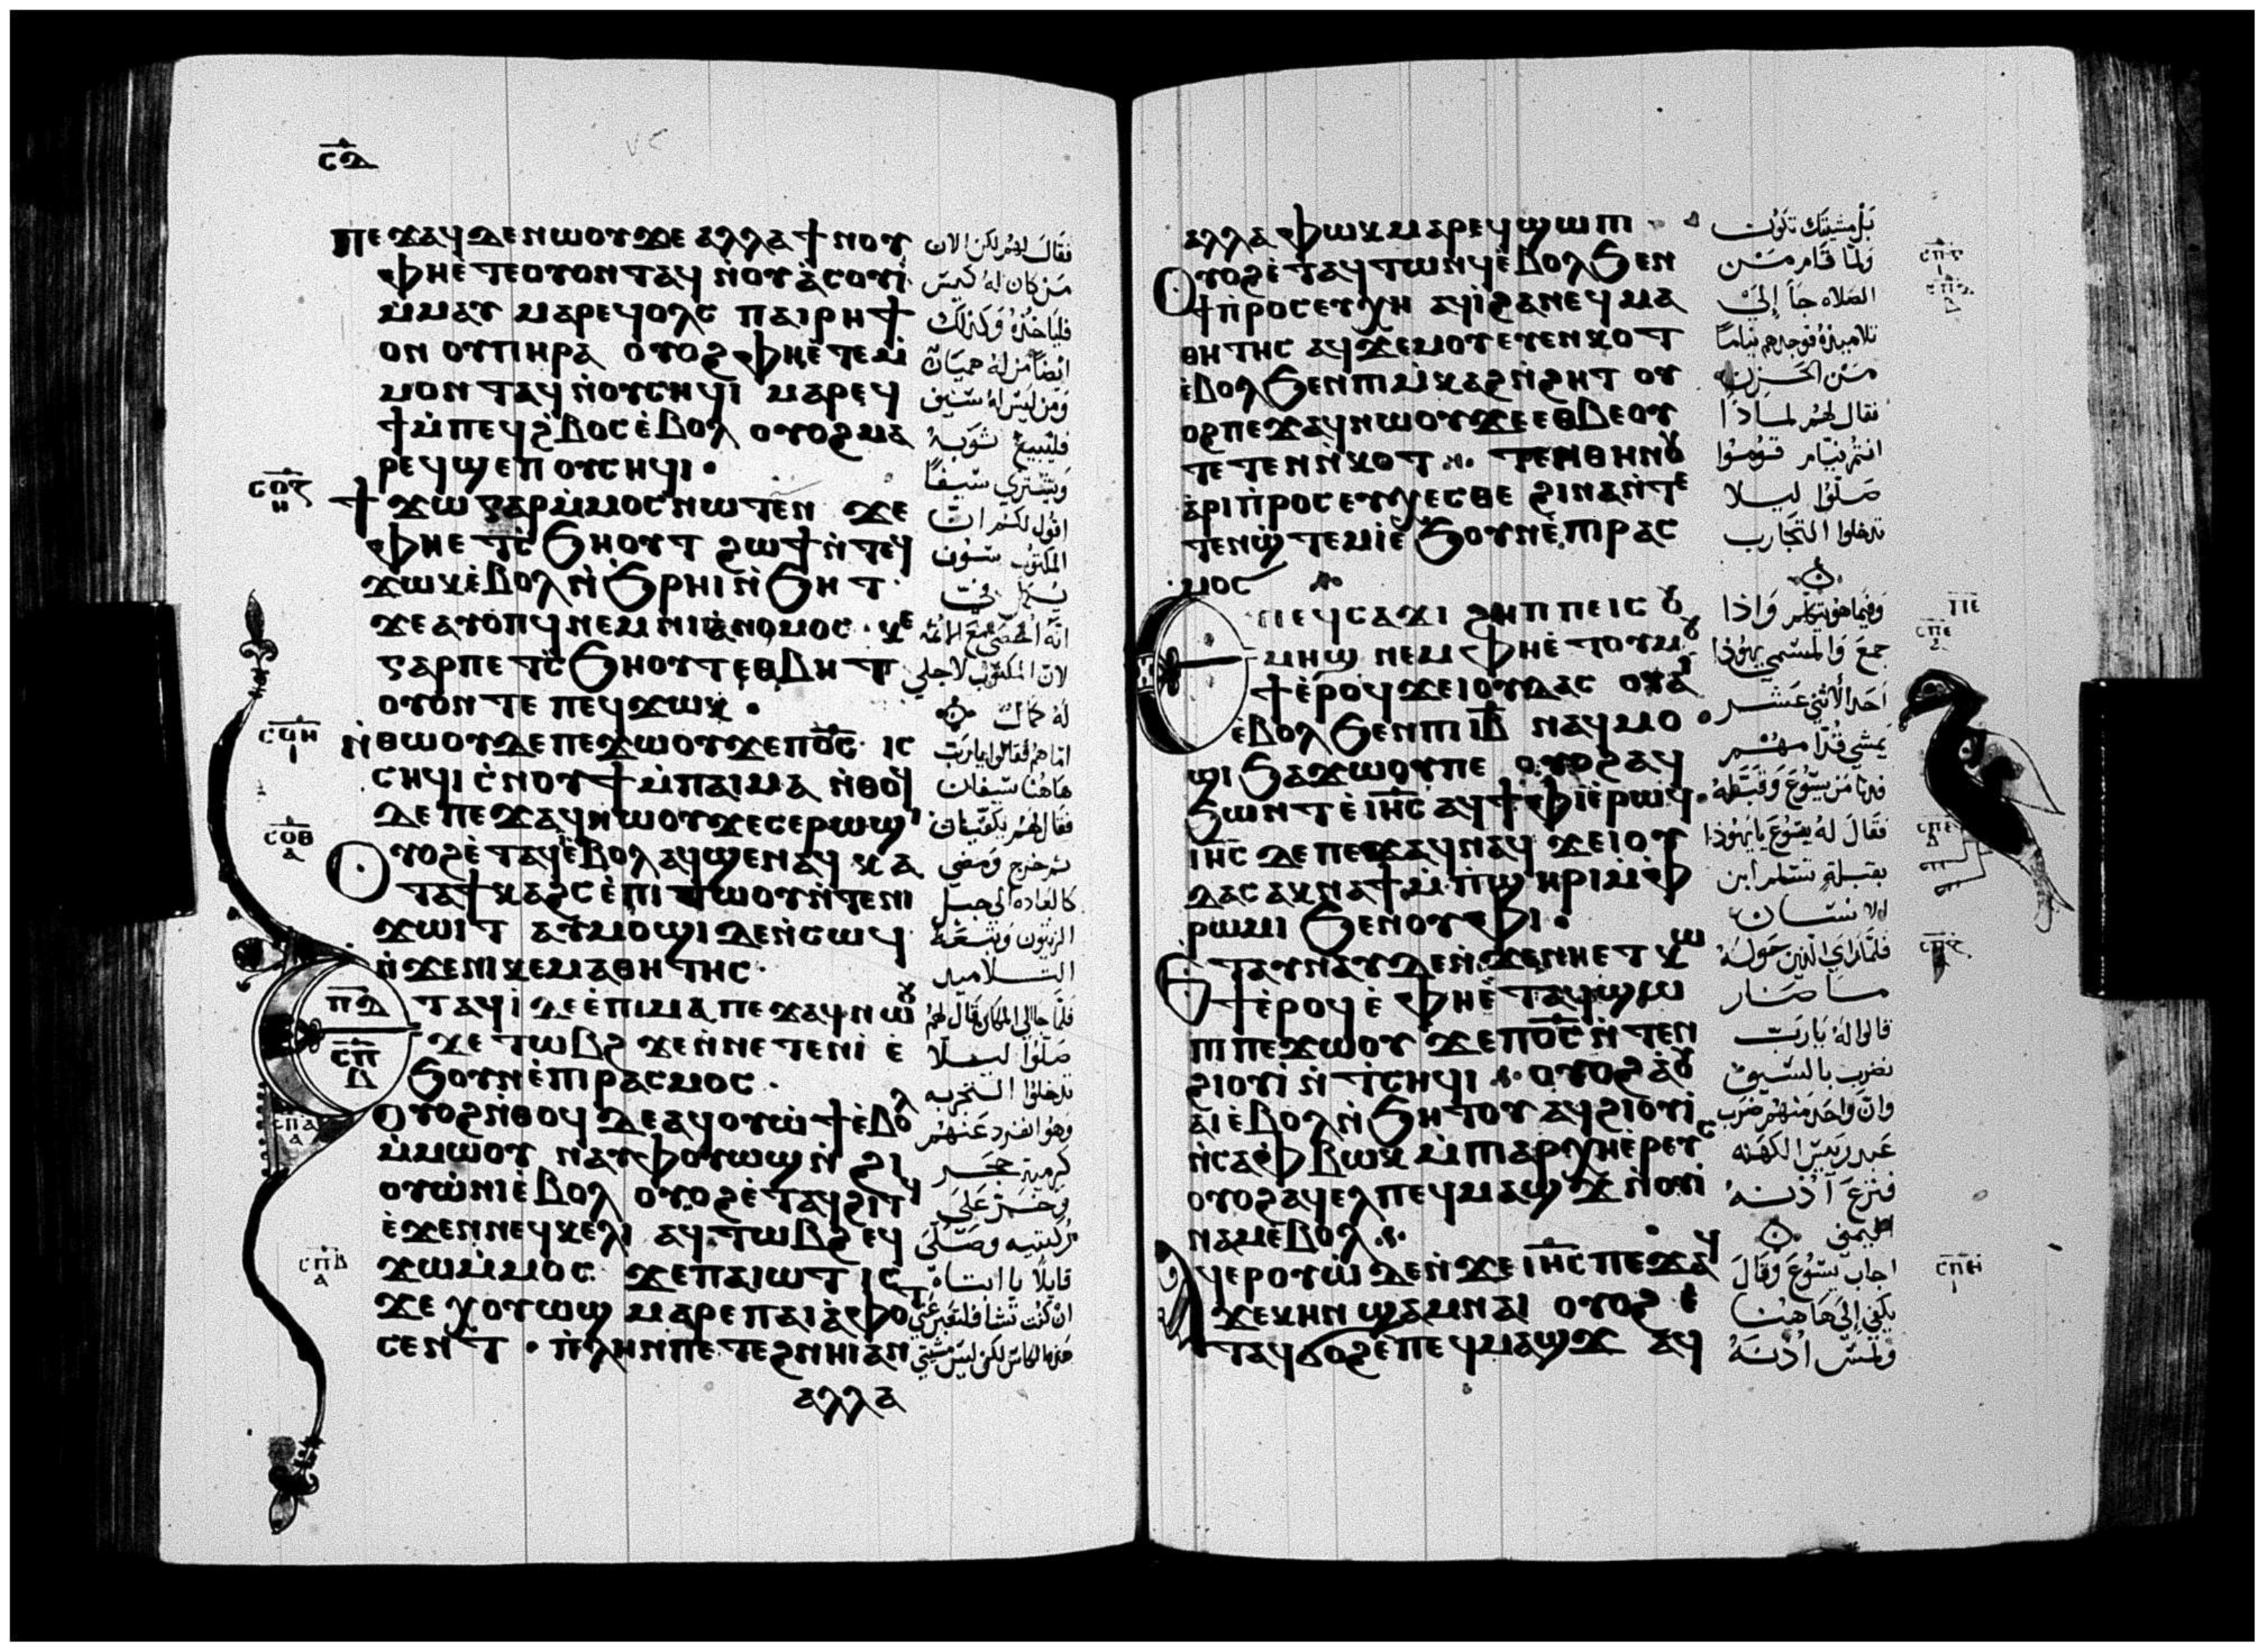 ⲥⲇ
ⲡⲉϫⲁϥ ⲇⲉ ⲛⲱⲟⲩ ϫⲉ ⲁⲗⲗⲁ ϯⲛⲟⲩ
ⲫⲏⲉ̀ⲧⲉⲟⲩⲟⲛⲧⲁϥ ⲛ̀ⲟⲩⲁ̀ⲥⲟⲩⲓ̀
ⲙ̀ⲙⲁⲩ ⲙⲁⲣⲉϥⲟⲗⲥ ⲡⲁⲓⲣⲏϯ
ⲟⲛ ⲟⲩⲡⲏⲣⲁ ⲟⲩⲟϩ ⲫⲏⲉ̀ⲧⲉⲙ̀
ⲙⲟⲛⲧⲁϥ ⲛ̀ⲟⲩⲥⲏϥⲓ ⲙⲁⲣⲉϥ
ϯⲙ̀ⲡⲉϥϩ̀ⲃⲟⲥ ⲉ̀ⲃⲟⲗ ⲟⲩⲟϩ ⲙⲁ
ⲣⲉϥϣⲉⲡ ⲟⲩⲥⲏϥⲓ ·
ⲥⲟⲍ
ⲏ
ϯϫⲱ ⲅⲁⲣ ⲙ̀ⲙⲟⲥ ⲛⲱⲧⲉⲛ ϫⲉ
ⲫⲏⲉⲧⲥ̀ϧⲏⲟⲩⲧ ϩⲱϯ ⲛ̀ⲧⲉϥ
ϫⲱⲕ ⲉ̀ⲃⲟⲗ ⲛ̀ϧⲣⲏⲓ ⲛ̀ϧⲏⲧ ·
ϫⲉ ⲁⲩⲟⲡϥ ⲛⲉⲙ ⲛⲓⲁ̀ⲛⲟⲙⲟⲥ · ⲕⲉ
ⲅⲁⲣ ⲡⲉⲧⲥ̀ϧⲏⲟⲩⲧ ⲉⲑⲃⲏⲧ
ⲟⲩⲟⲛⲧⲉ ⲡⲉϥϫⲱⲕ ·
ⲥⲟⲏ
ⲓ
ⲛ̀ⲑⲱⲟⲩ ⲇⲉ ⲡⲉϫⲱⲟⲩ ϫⲉ ⲡⲟ̅ⲥ̅ · ⲓⲥ
ⲥⲏϥⲓ ⲥ̀ⲛⲟⲩϯ ⲙ̀ⲡⲁⲓⲙⲁ ⲛ̀ⲑⲟϥ
ⲇⲉ ⲡⲉϫⲁϥ ⲛⲱⲟⲩ ϫⲉ ⲥⲉⲣⲱϣⲓ
ⲥⲟⲑ
ⲁ
ⲟⲩⲟϩ ⲉ̀ⲧⲁϥⲓ̀ ⲉ̀ⲃⲟⲗ ⲁϥϣⲉⲛⲁϥ ⲕⲁ
ⲧⲁ ϯⲕⲁϩⲥ ⲉ̀ⲡⲓⲧⲱⲟⲩ ⲛ̀ⲧⲉ ⲛⲓ
ϫⲱⲓⲧ ⲁⲩⲙⲟϣⲓ ⲇⲉ ⲛ̀ⲥⲱϥ
ⲛ̀ϫⲉ ⲛⲓⲕⲉⲙⲁⲑⲏⲧⲏⲥ ·
ⲡⲇ
ⲥⲡ
ⲇ
ⲧⲁϥⲓ̀ ⲇⲉ ⲉ̀ⲡⲓⲙⲁ ⲡⲉϫⲁϥ ⲛⲱⲟⲩ
ϫⲉ ⲧⲱⲃϩ ϫⲉ ⲛ̀ⲛⲉⲧⲉⲛⲓ̀ ⲉ̀
ϧⲟⲩⲛ ⲉ̀ⲡⲓⲣⲁⲥⲙⲟⲥ ·
ⲥⲡⲁ
ⲁ
ⲟⲩⲟϩ ⲛ̀ⲑⲟϥ ⲇⲉ ⲁϥⲟⲩⲱ̀ϯ ⲉ̀ⲃⲟⲗ
ⲙ̀ⲙⲱⲟⲩ ⲛⲁⲩ ⲫⲟⲩⲱϣ ⲛ̀ϩⲓ
ⲟⲩⲱ̀ⲛⲓ ⲉ̀ⲃⲟⲗ ⲟⲩⲟϩ ⲉ̀ⲧⲁϥϩⲓⲧϥ
ⲉ̀ϫⲉⲛ ⲛⲉϥⲕⲉⲗⲓ ⲁϥⲧⲱⲃϩ ⲉϥ
ⲥⲡⲃ
ⲁ
ϫⲱⲙ̀ⲙⲟⲥ ϫⲉ ⲡⲁⲓⲱⲧ ⲓⲥ
ϫⲉ ⲭⲟⲩⲱϣ ⲙⲁⲣⲉ ⲡⲁⲓⲁ̀ⲫⲟⲧ
ⲥⲉⲛⲧ · ⲡ̀ⲗⲏⲛ ⲡⲉⲧⲉϩⲛⲏⲓ ⲁⲛ
ⲁⲗⲗⲁ
فقال لهم لكن الان
من كان له كيس
فلياخذه وكذلك
ايضا من له هميان
ومن ليس له سيف
فليبيع ثوبه
ويشتري سيفا
اقول لكم ان
المكتوب سوف
يكمل في
انه احصي مع الاثمه
لان المكتوب لاجلي
له كمال
اما هم فقالوا يارب
هاهنا سيفان
فقال لهم يكفيان
ثم خرج ومضي
كالعاده الي جبل
الزيتون وتبعه
التلاميد
فلما جا الي المكان قال لهم
صلوا ليلا
تدخلوا التجربه
وهو انفرد عنهم
كرمية حجر
وخر علي
ركبتيه وصلي
قايلا يا ابتاه
ان كنت تشا فلتعبر عني
هده الكاس لكن ليس مشيتي
ⲁⲗⲗⲁ ⲫⲱⲕ ⲙⲁⲣⲉϥϣⲱⲡⲓ
ⲟⲩⲟϩ ⲉ̀ⲧⲁϥⲧⲱⲛϥ ⲉ̀ⲃⲟⲗϧⲉⲛ
ϯⲡ̀ⲣⲟⲥⲉⲩⲭⲏ ⲁϥⲓ̀ ϩⲁ ⲛⲉϥⲙⲁ
ⲑⲏⲧⲏⲥ ⲁϥϫⲉⲙⲟⲩ ⲉⲩⲉⲛⲕⲟⲧ
ⲉ̀ⲃⲟⲗϧⲉⲛ ⲡⲓⲙ̀ⲕⲁϩ ⲛ̀ϩⲏⲧ ⲟⲩ
ⲟϩ ⲡⲉϫⲁϥ ⲛⲱⲟⲩ ϫⲉ ⲉⲑⲃⲉⲟⲩ
ⲧⲉⲧⲉⲛⲛ̀ⲕⲟⲧ ·:· ⲧⲉⲛⲑⲏⲛⲟⲩ
ⲁ̀ⲣⲓⲡ̀ⲣⲟⲥⲉⲩⲭⲉⲥⲑⲉ ϩⲓⲛⲁ ⲛ̀ⲧⲉ
ⲧⲉⲛϣ̀ⲧⲉⲙⲓ̀ ⲉ̀ϧⲟⲩⲛ ⲉ̀ⲡⲓⲣⲁⲥ
ⲙⲟⲥ
ⲉϥⲥⲁϫⲓ ϩⲏⲡⲡⲉ ⲓⲥ ⲟⲩ
ⲙⲏϣ ⲛⲉⲙ ⲫⲏⲉ̀ⲧⲟⲩⲙⲟⲩ
ϯ ⲉ̀ⲣⲟϥ ϫⲉ ⲓⲟⲩⲇⲁⲥ ⲟⲩⲁⲓ
ⲉ̀ⲃⲟⲗϧⲉⲛ ⲡⲓⲓ̅ⲃ̅ ⲛⲁϥⲙⲟ
ϣⲓ ϧⲁϫⲱⲟⲩ ⲡⲉ ⲟⲩⲟϩ ⲁϥ
ϧⲱⲛⲧ ⲉ̀ⲓⲏ̅ⲥ̅ ⲁϥϯⲫⲓ ⲉ̀ⲣⲱϥ ·
ⲓⲏ̅ⲥ̅ ⲇⲉ ⲡⲉϫⲁϥ ⲛⲁϥ ϫⲉ ⲓⲟⲩ
ⲇⲁⲥ ⲁⲕⲛⲁϯ ⲙ̀ⲡ̀ϣⲏⲣⲓ ⲙ̀ⲫ̀
ⲣⲱⲙⲓ ϧⲉⲛ ⲟⲩⲫⲓ ·
ⲉⲧⲁⲩⲛⲁⲩ ⲇⲉ ⲛ̀ϫⲉ ⲛⲏⲉⲧⲕⲱ
ϯ ⲉ̀ⲣⲟϥ ⲉ̀ ⲫⲏⲉ̀ⲧⲁϥϣⲱ
ⲡⲓ ⲡⲉϫⲱⲟⲩ ϫⲉ ⲡⲟ̅ⲥ̅ ⲛ̀ⲧⲉⲛ
ϩⲓⲟⲩⲓ̀ ⲛ̀ⲧ̀ⲥⲏϥⲓ ·:· ⲟⲩⲟϩ ⲁ̀ⲟⲩ
ⲁⲓ ⲉ̀ⲃⲟⲗ ⲛ̀ϧⲏⲧⲟⲩ ⲁϥϩⲓⲟⲩⲓ̀
ⲛ̀ⲥⲁ ⲫ̀ⲃⲱⲕ ⲙ̀ⲡⲓⲁⲣⲭⲏⲉ̀ⲣⲉⲩⲥ
ⲟⲩⲟϩ ⲁϥⲉⲗ ⲡⲉϥⲙⲁϣϫ ⲛ̀ⲟⲩⲓ̀
ⲛⲁⲙ ⲉ̀ⲃⲟⲗ ·:·
ⲁϥⲉⲣⲟⲩⲱ̀ ⲇⲉ ⲛ̀ϫⲉ ⲓⲏ̅ⲥ̅ ⲡⲉϫⲁϥ
ϫⲉ ⲕⲏⲛ ϣⲁ ⲙⲛⲁⲓ ⲟⲩⲟϩ ⲉ̀
ⲧⲁϥϭⲟϩ ⲉ̀ⲡⲉϥⲙⲁϣϫ ⲁϥ
بل مشيتك تكون
ولما قام من
الصلاه جا إلي
تلاميذه فوجدهم نياما
من الحزن
فقال لهم لماذا
انتم نيام قوموا
صلوا ليلا
تدخلوا التجارب
وفيما هو يتكلم واذا
جمع والمسمي يهوذا
احد الاثني عشر
يمشي قدامهم
فدنا من يسوع وقبله
فقال له يسوع يا يهوذا
بقبلة تسلم ابن
الانسان
فلما راي الذين حوله
ما صار
قالوا له يارب
نضرب بالسيف
وان واحد منهم ضرب
عبد رييس الكهنه
فنزع اذنه
اليمني
اجاب يسوع وقال
يكفي إلي هاهنا
ولمس اذنه
ⲡⲉ
ⲥⲡⲉ
ⲥⲡⲏ
ⲓ